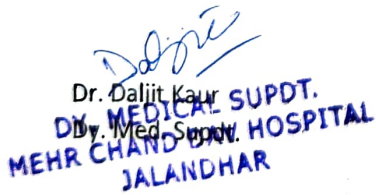 Daljit
Dr. Daljit Kaur
Dy. Med. Supdt.
DY. MEDICAL SUPDT.
MEHR CHAND HOSPITAL
JALANDHAR